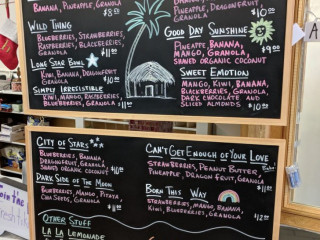 Banana,
Pineapple, Granola
$8.00
Wild Thing
Blueberries, Strawberries,
Raspberries, Blackberries,
Granola
$11
Long Star Bowl
Kiwi, Banana, Dragonfruit,
Granola
$10
Simply Irresistible
Kiwi, Mango, Raspberries,
Blueberries, Granola
$11
Dragonfruit,
Granola
$10
Good Day Sunshine
Pineapple, Banana,
Mango, Granola,
Shaved Organic Coconut
$9
Sweet Emotion
Mango, Kiwi, Banana,
Blackberries, Granola,
Dark Chocolate and
Sliced Almonds
$10
City of Stars
Blueberries, Banana,
Dragonfruit, Granola,
Shaved Organic Coconut
Dark Side of the Moon
Blueberries, Mango, Pitaya,
Chia Seeds, Granola
$10
Can't Get Enough of Your Love
Strawberries, Peanut Butter,
Pineapple, Dragon Fruit, Granola
Born This Way
Strawberries, Mango, Banana,
Kiwi, Blueberries, Granola
Other Stuff
La La Lemonade
Join the